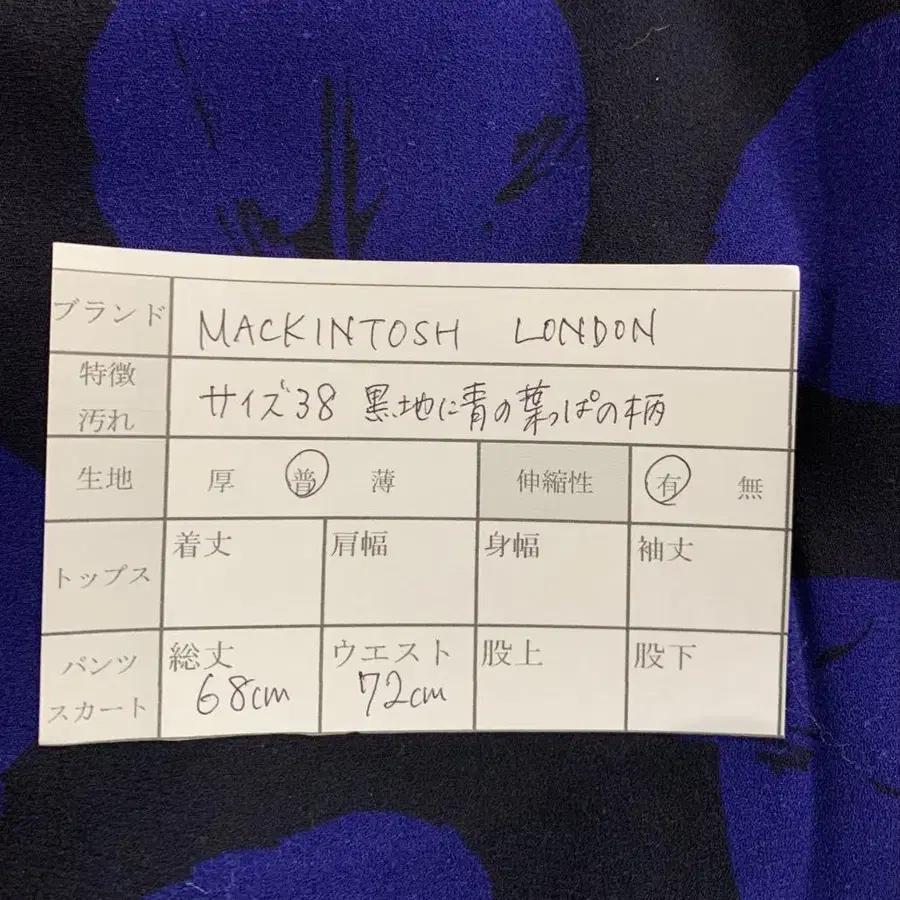 ブランド MACKINTOSH LONDON
特徴
汚れ サイズ38 黒地に青の葉っぱの柄
生地 厚 普 薄 伸縮性 有 無
トップス 着丈 肩幅 身幅 袖丈
パンツ
スカート 総丈 ウエスト 股上 股下
68cm 72cm